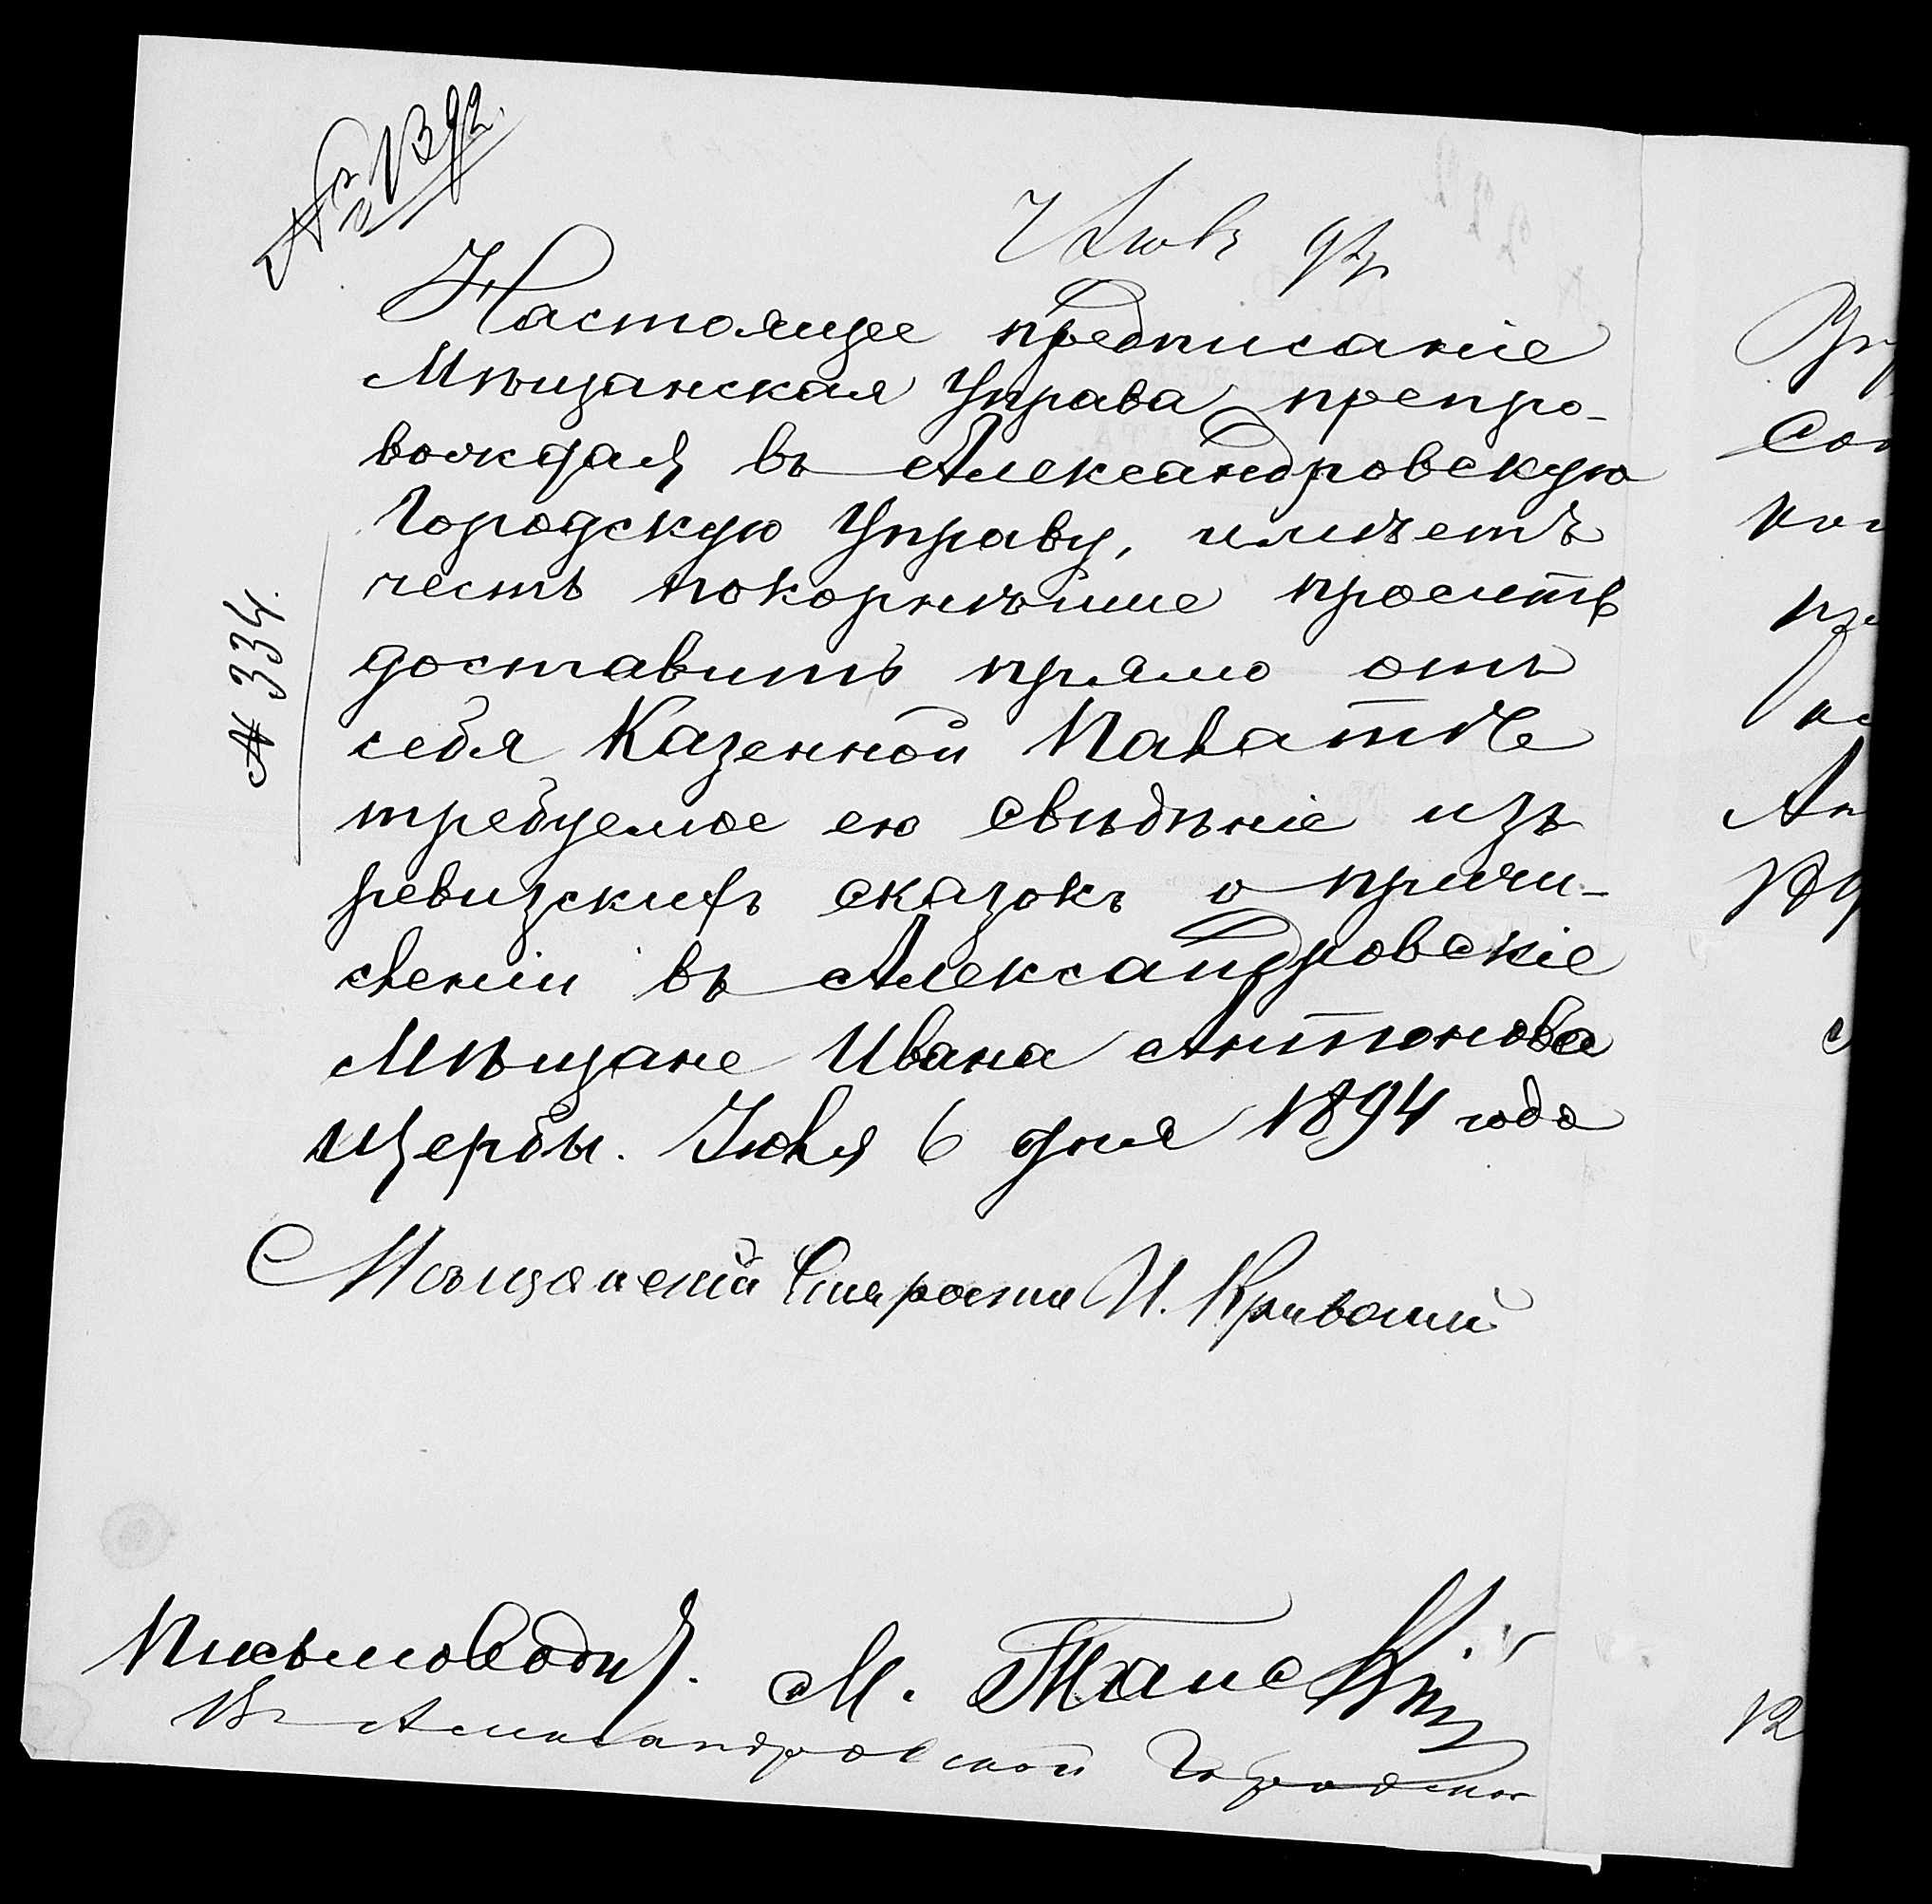 № 1392.
7 Июля 94 г.
Настоящее предписаніе
Мѣщанская Управа, препро-
вождая въ Александровскую
Городскую Управу, имѣетъ
честь покорнѣйше просить
доставить прямо отъ
себя Казенной Палатѣ
требуемое ею свѣдѣніе изъ
ревизскихъ сказокъ о причи-
сленіи въ Александровскіе
Мѣщане Ивана Антонова
Щербы. Июля 6 дня 1894 года
№ 334.
Мѣщанскій Староста И.
Письмоводит. М.
Въ Александровской Городской